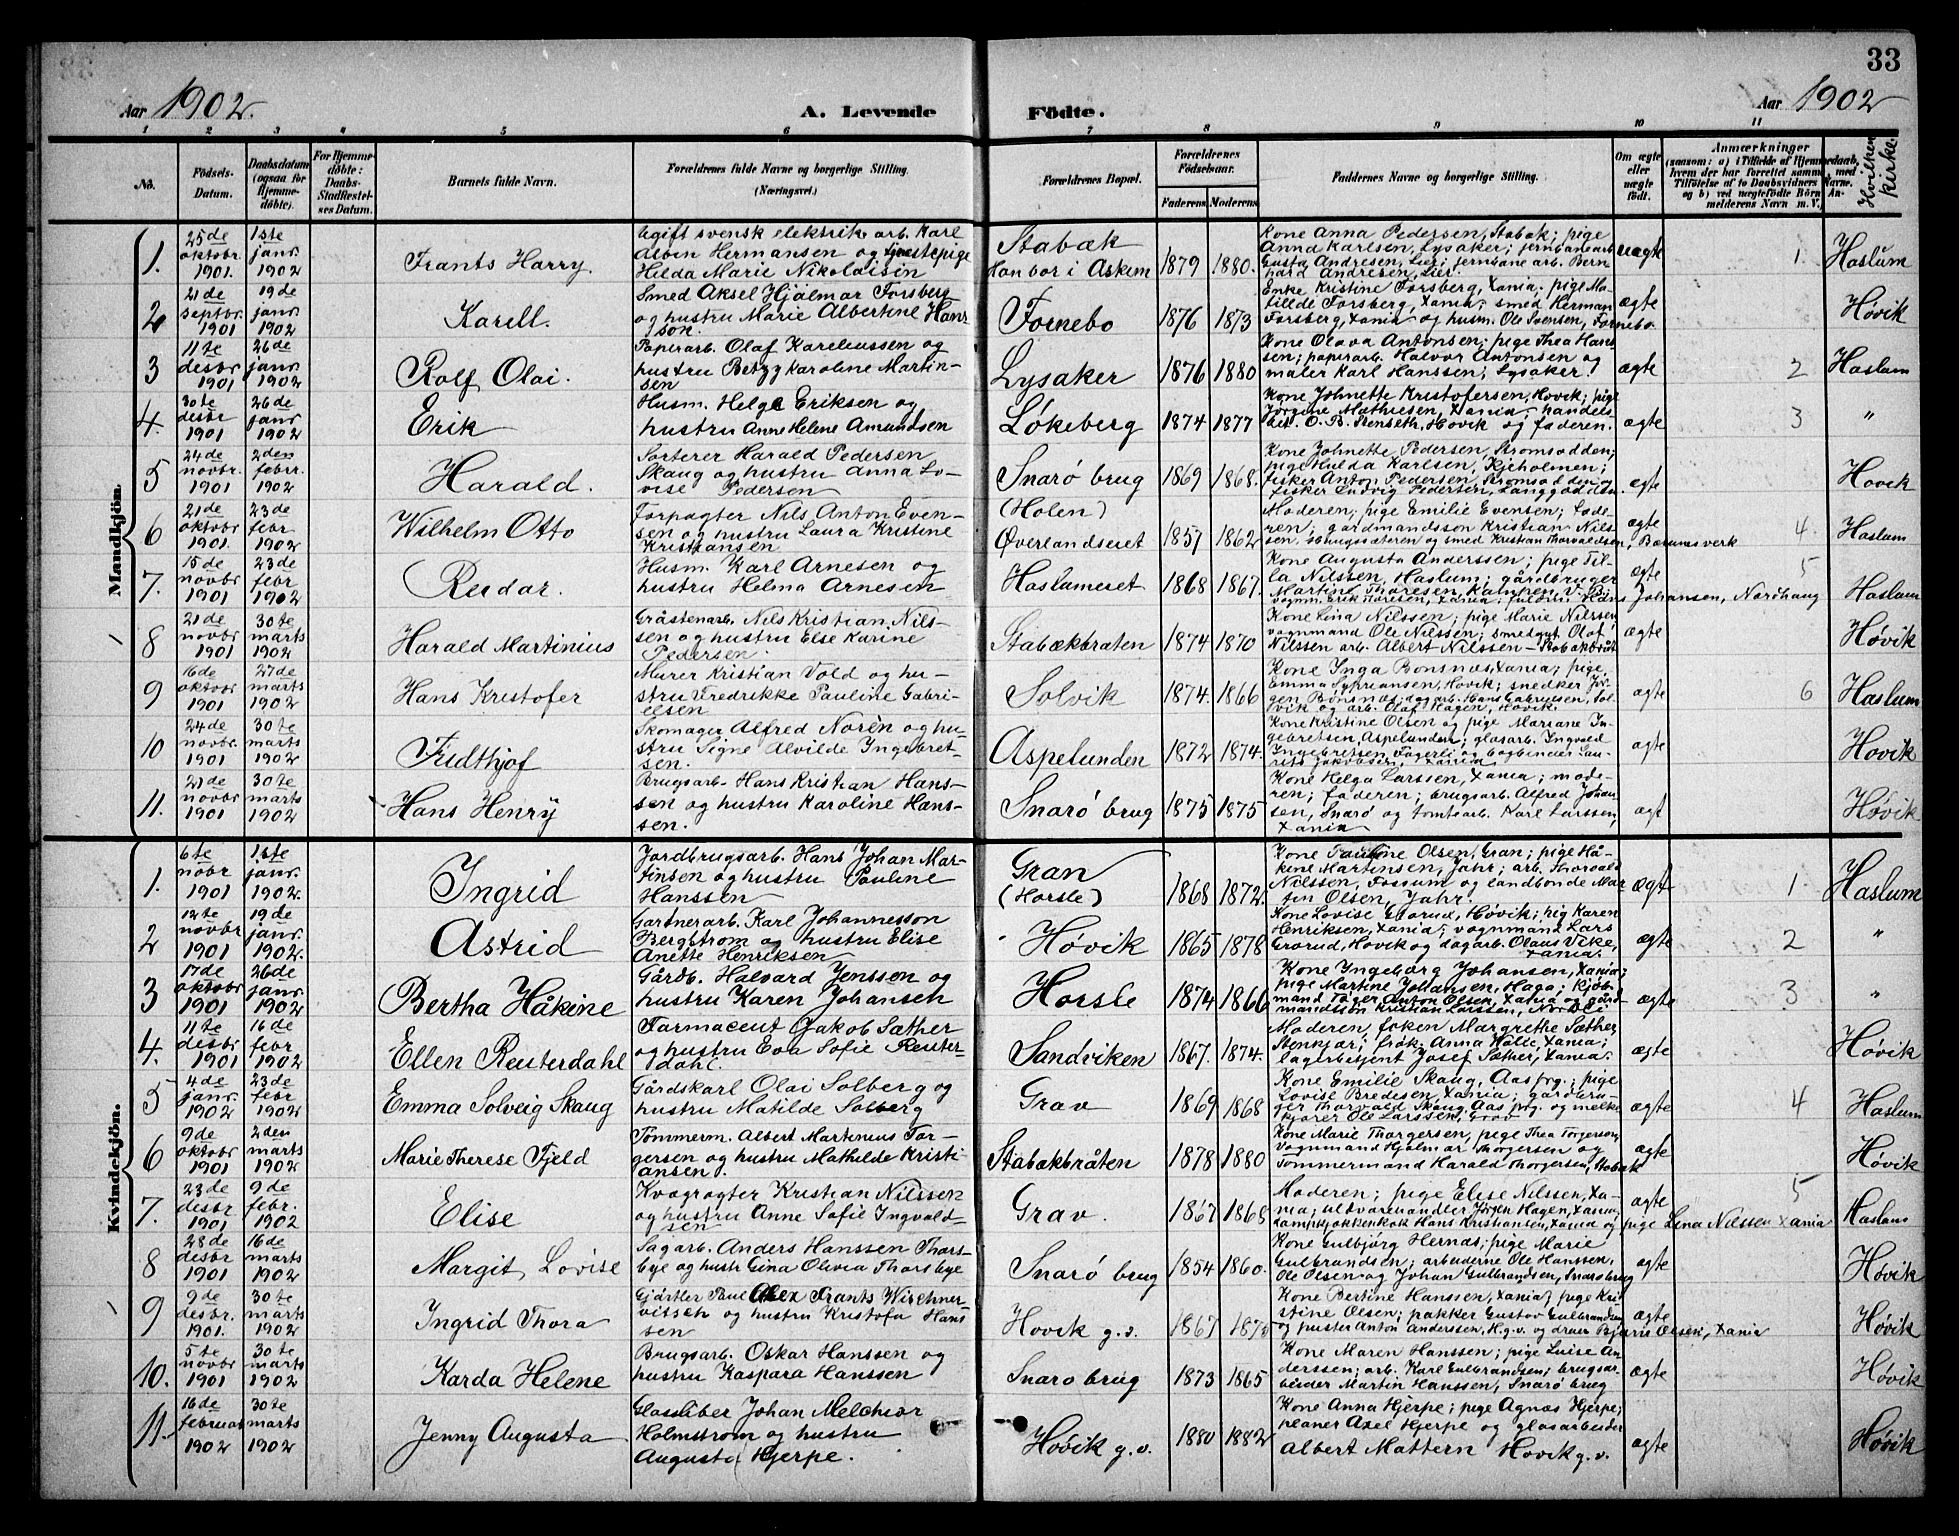 33
Aar 1902.
A. Levende
Födte.
Aar 1902
1 2 3 4 5 6 7 8 9 10 11
No.
Födsels-Datum.
Daabsdatum (ogsaa for Hjemme-döbte).
For Hjemme-döbte: Daabs-Stadfæstelses Datum.
Barnets fulde Navn.
Forældrenes fulde Navne og borgerlige Stilling. (Næringsvei.)
Forældrenes Bopæl.
Forældrenes Födselsaar.
Faderens Moderens
Faddernes Navne og borgerlige Stilling.
Om ægte eller uægte födt.
Anmærkninger
Hvilken Kirke.
Mandkjön.
1. 25de oktobr. 1901. 1ste janr. 1902 Frants Harry Ugift svensk elektrik. arb. Karl Alben Hermansen og tjenestepige Hilda Marie Nikolaisen Stabæk Han bor i Askim 1879 1880. Kone Anna Pedersen, Stabæk; pige Anna Karlsen, Lysaker; jernbanearb. Gusta Andresen, Lier; jernbane arb. Bernhard Andresen, Lier. uægte 1. Haslum
2 21de septbr. 1901 19de janr. 1902 Karell. Smed Aksel Hjalmar Forsberg og hustru Marie Albertine Hanssøn. Fornebo 1876 1873 Enke Kristine Forsberg, Xania; pige Matillde Forsberg, Xania; smed Herman Forsberg, Xania og husm. Ole Svensen, Fornebo ægte Høvik
3 11te desbr 1901 26de janr. 1902 Rolf Olai. Papirarb. Olaf Kareliussen og hustru Betzy Karoline Martinsen Lysaker 1876 1880 Kone Olava Antonsen; pige Thea Hanssen; papirarb. Halvor Antonsen og maler Karl Hanssen, Lysaker. ægte 2 Haslum
4. 30te desbr 1901 26de janr 1902 Erik Husm. Helge Eriksen og hustru Anne Helene Amundsen Løkeberg 1874 1877 Kone Johnette Kristofersen, Høvik; pige Jørgine Mathiesen, Xania; handelsbet. O. B. Stenseth, Høvik og faderen. ægte 3 "
5 24de novbr. 1901 2den febrr. 1902 Harald. Sorterer Harald Pedersen Skaug og hustru Anna Lovise Pedersen Snarø brug (Holen) 1869 1868. Kone Johnette Pedersen, Strømsodden; pige Hulda Karlsen, Kjeholmen; fisker Anton Pedersen, Strømsodden og fisker Ludvig Pedersen, Langgodden. ægte Høvik
6 21de oktobr 1901. 23de febr 1902 Wilhelm Otto Forpagter Nils Anton Evensen og hustru Laura Kristine Kristiansen Øverlandseiet 1857 1862 Moderen; pige Emilie Evensen; faderen; gårdmandssøn Kristian Nilssen, Haugssæteren og smed Kristian Thorvaldsen, Bærumsverk ægte 4 Haslum
7. 15de novbr 1901 23de febr 1902 Reidar. Husm. Karl Arnesen og hustru Helma Arnesen Haslumseiet 1868 1867. Kone Augusta Anderssen; pige Tilla Nilssen, Haslum; gårdbruger Martine Thoresen, Kampen, V. B; vognm. Erik Thoresen, Xania; Hans Johansen, Nordhaug ægte 5 Haslum
8 21de novbr 1901 30te marts 1902 Harald Martinius Gråstenarb. Nils Kristian Nilssen og hustru Else Karine Pedersen. Stabækbraten 1874 1870 Kone Lina Nilssen; pige Marie Nilssen; vognmand Ole Nilssen; smedgut Olaf Nilssen arb. Albert Nilssen – Stabækbråt ægte Høvik
9 16de oktobr 1901 27de marts 1902 Hans Kristofer Murer Kristian Vold og hustru Fredrikke Pauline Gabrielsen Solvik 1874. 1866 Kone Inga Bønsnæs, Xania; pige Emma Syhreansen, Høvik; snedker Jørgen Bønsnæs; dagarb. Hans Gabrielsen, Solvik og arb. Olaf Hagen, Høvik. ægte 6 Haslum
10 24de novbr. 1901 30te marts 1902 Fridthjof Skomager Alfred Norén og hustru Signe Alvilde Ingebretsen. Aspelunden 1872 1874. Kone Kristine Olsen og pige Mariane Ingebretsen, Aspelunden; glasarb. Ingvald Ingebretsen, Fagerli og bogbinder Laurits Jakobsen, Xania ægte Høvik
11. 21de novbr 1901 30te marts 1902 Hans Henry Brugsarb. Hans Kristian Hanssen og hustru Karoline Hanssen. Snarø brug 1875 1875 Kone Helga Larssen, Xania; moderen; faderen; brugsarb. Alfred Johansen, Snarø og tomtearb. Karl Larssen, Xania ægt Høvik
Kvindekjön.
1. 6te novbr 1901 1ste janr. 1902. Ingrid Jordbrugsarb. Hans Johan Martinsen og hustru Pauline Hanssen Gran (Horsle) 1868 1872. Kone Pauline Olsen, Gran; pige Håkine Martinsen, Jahr; arb. Thorvald Nilssen, Fossum og landbonde Martin Olsen, Jahr. ægte 1. Haslum
2 12te novbr 1901 19de janr. 1902. Astrid Gartnerarb. Karl Johannesson Bergstrøm og hustru Elise Anette Henriksen Høvik 1865 1878 Kone Lovise Grorud, Høvik; pig Karen Henriksen, Xania; vognmand Lars Grorud, Høvik og dagarb. Olaus Vike, Xania. ægte 2 "
3 17de oktobr 1901 26de janr 1902 Bertha Håkine Gårdb. Halvard Jenssen og hustru Karen Johansen Horsle 1874 1866 Kone Ingebørg Johansen, Xania; pige Martine Johansen, Haga; kjøbmand Inger Anton Olsen, Xania og gårdmandssøn Kristian Larssen, Nordli ægte 3 "
4. 11te desbr 1901 16de febr 1902 Ellen Reuterdahl Farmaceut Jakob Sæther og hustru Eva Sofie Reuterdahl. Sandviken 1867. 1874. Moderen, frøken Margrethe Sæther, Stenkjær; frøk. Anna Holle, Xania; lagerbetjent Josef Sæther, Xania. ægte Høvik
5 4de janr. 1902 23de febr 1902 Emma Solveig Skaug Gårdskarl Olai Solberg og hustru Matilde Solberg Grav 1869 1868 Kone Emilie Skaug, Aas prg.; pige Lovise Bredesen, Xania; gårdbruger Thorvald Skaug, Aas prg. og melkekjører Ole Larssen, Grav ægte 4 Haslum
6 9de oktobr 1901 2den marts 1902 Marie Therese Fjeld Tømmerm. Albert Martinius Torgersen og hustru Mathilde Kristiansen. Stabækbråten 1878 1880 Kone Marie Thorgersen, pige Thea Torgersen, Vognmand Hjalmar Thorgersen og Tømmermand Harald Thorgersen, Stabæk ægte Høvik
7. 23de desbr 1901 9de febr. 1902 Elise Kvægrøgter Kristian Nilssen og hustru Anne Sofie Ingvaldsen Grav. 1867 1868 Moderen; pige Elise Nilssen, Xania; uldvarehandler Jørgen Hagen, Xania; Dampkjøkkenkok Hans Kristiansen, Xania og pige Lina Nilssen Xania ægte 5 Haslum
8 28de desbr 1901 16de marts 1902 Margit Lovise Sagarb. Anders Hanssen Thorsbye og hustr Gina Olivia Thorsbye Snarø brug 1854 1860. Kone Gulbjørg Hernæs; pige Marie Gulbrandsen; arbeiderne Ole Hanssen, Ole Olsen og Johan Gulbrandsen, Snarø brug ægte Høvik
9 9de desbr. 1901. 30te marts 1902 Ingrid Thora Gjørtler Paul Alex Frants Wischnervitsch og hustru Kristofa Hanssen Høvik g.v. 1867 1875 Kone Bertine Hanssen, Xania; pige Kristine Olsen; pakker Gustov Gulbrandsen og puster Anton Anderssen, H.g.v. og dreier Bjarne Olsen, Xania ægte Høvik
10. 5te novbr 1901 30te marts 1902 Karda Helene Brugsarb. Oskar Hanssen og hustru Kaspara Hanssen Snarø brug 1873 1865 Kone Maren Hanssen; pige Luise Anderssen; arb. Karl Gulbrandsen; brugsarbeider Martin Hanssen, Snarø brug ægte Høvik
11. 16de februar 1902 30te marts 1902 Jenny Augusta Glassliber Johan Melchior Holmstrøm og hustru Augusta Hjerpe. Høvik g.v. 1880 1882 Kone Anna Hjerpe; pige Agnes Hjerpe; planer Axel Hjerpe og glasarbeider Albert Mattern Høvik g.v. ægte Høvik